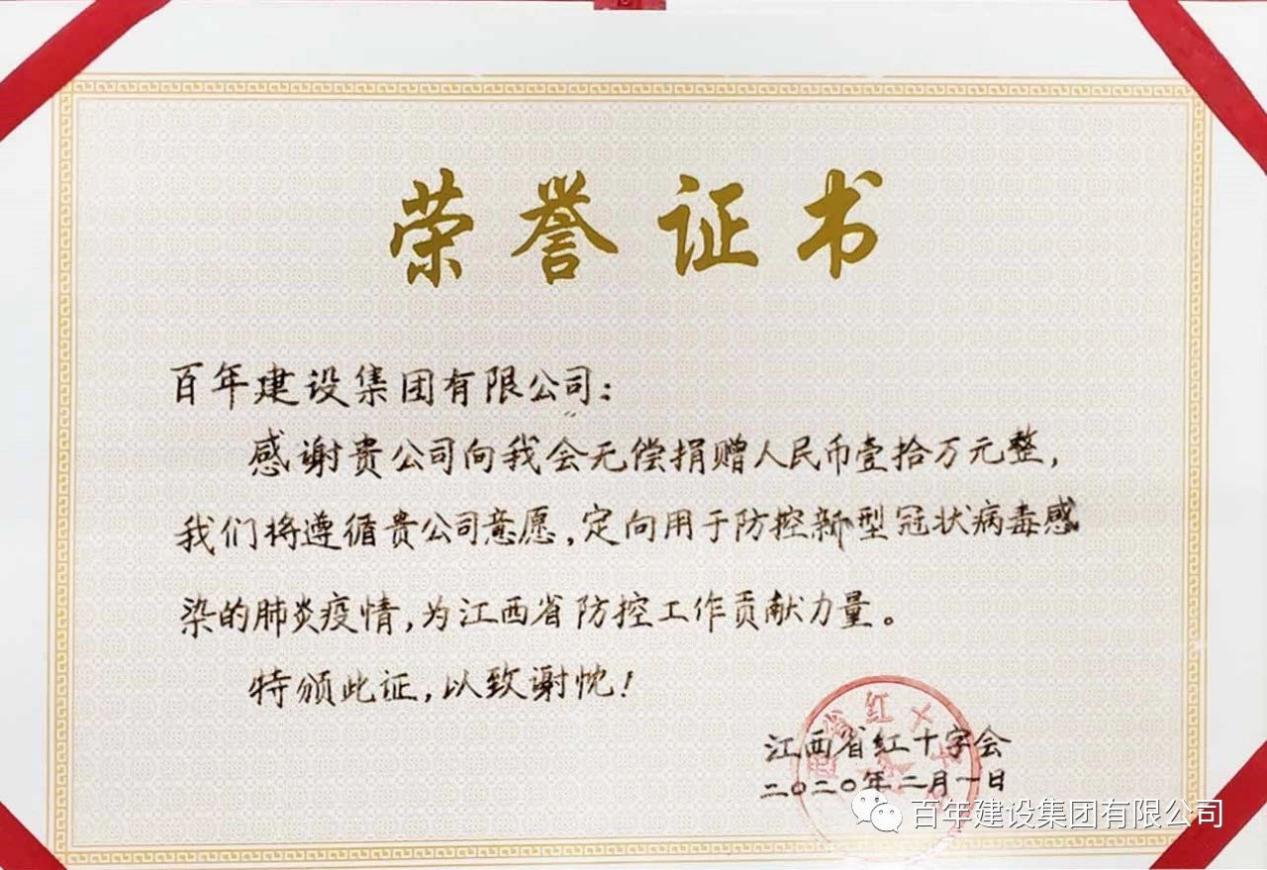 荣誉证书
百年建设集团有限公司：
感谢贵公司向我会无偿捐赠人民币壹拾万元整，
我们将遵循贵公司意愿，定向用于防控新型冠状病毒感
染的肺炎疫情，为江西省防控工作贡献力量。
特颁此证，以致谢忱！
江西省红十字会
二〇二〇年二月一日
百年建设集团有限公司